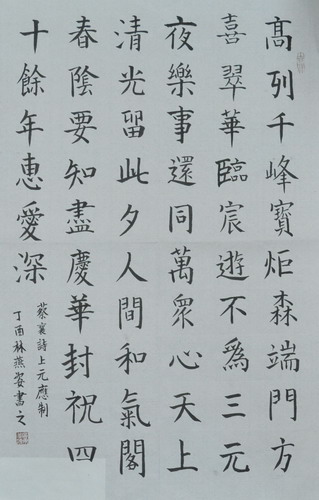 高列千峰寶炬森端門方
喜翠華臨宸遊不為三元
夜樂事還同萬眾心天上
清光留此夕人間和氣閣
春陰要知盡慶華封祝四
十餘年惠愛深
蔡襄詩上元應制
丁酉林燕姿書之